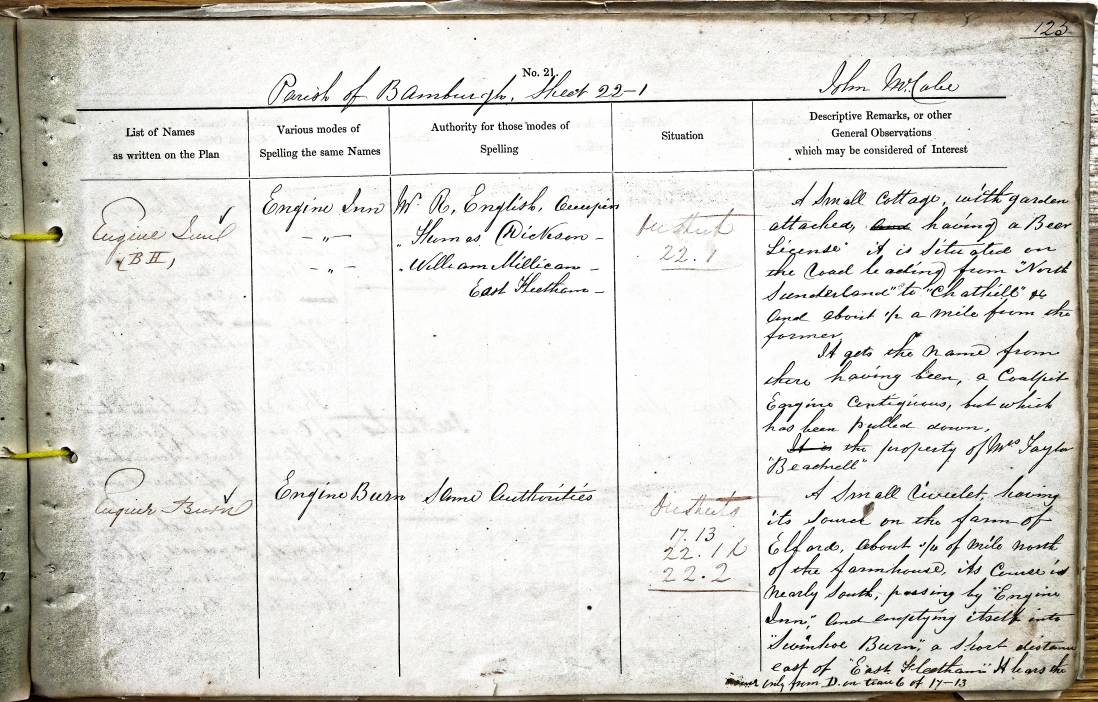 125
No. 21.
Parish of Bamburgh, Sheet 22-1
John McCabe
List of Names
as written on the Plan
Various modes of
Spelling the same Names
Authority for those modes of
Spelling
Situation
Descriptive Remarks, or other
General Observations
which may be considered of Interest
Engine Inn
(B H)
Engine Inn
- „ -
- „ -
W. R. English, Occupier
„ Thomas Dickson -
„ William Millican -
East Fleetham -
On Sheet
22.1
A Small Cottage, with garden
attached, and having a Beer
License it is situated on
the road leading from "North
Sunderland" to "Chathill" &c
and about 1/2 a mile from the
former
It gets the name from
there having been, a Coalpit
Engine Contiguous, but which
has been pulled down,
It is the property of Mrs Taylor
"Beadnell"
Engine Burn
Engine Burn
Same Authorities
On Sheets
17.13
22.1
22.2
A Small rivulet, having
its source on the farm of
Elford, about 1/4 of mile north
of the farmhouse, its Course is
nearly South, passing by "Engine
Inn," and emptying itself into
"Swinhoe Burn," a short distance
east of "East Fleetham" It bears the
name only from D. on trace 6 of 17-13